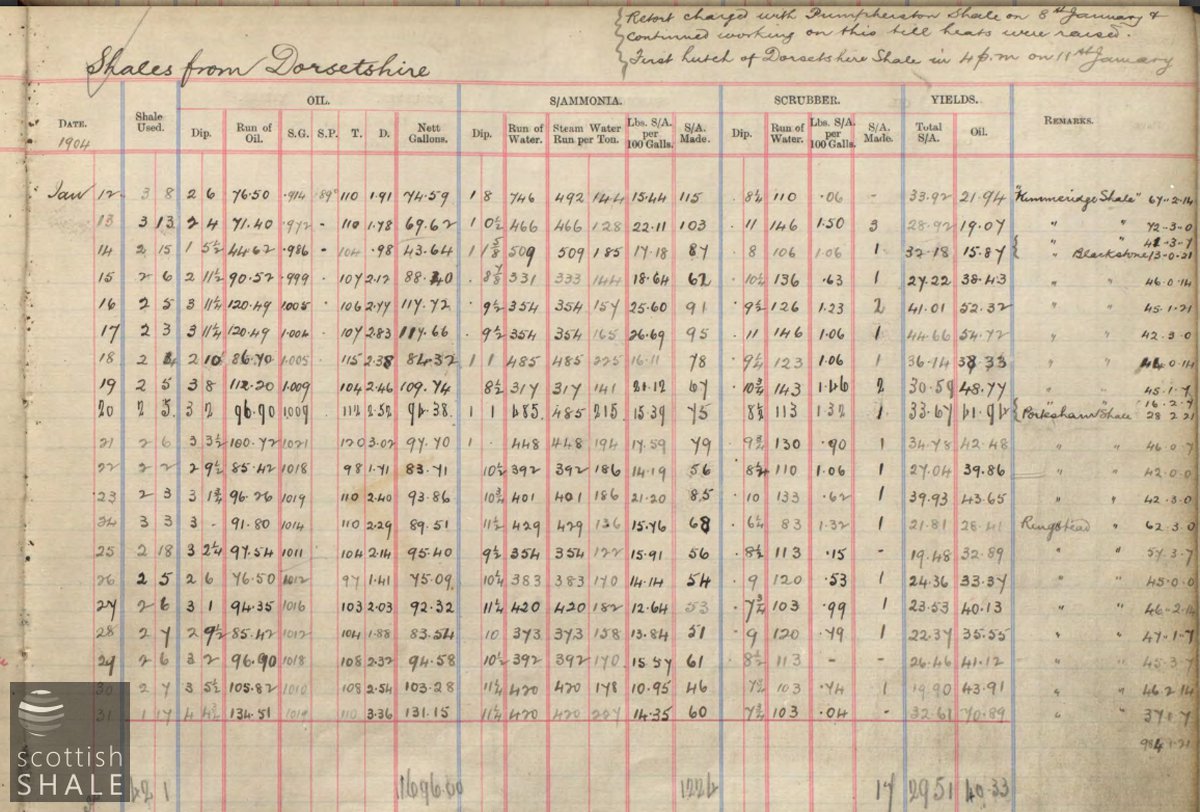 Retort charged with Pumpherston Shale on 8th January &
continued working on this till heats were raised.
First hutch of Dorsetshire Shale in 4 p.m on 11th January
Shales from Dorsetshire
OIL. S/AMMONIA. SCRUBBER. YIELDS.
DATE. Shale Used. Dip. Run of Oil. S.G. S.P. T. D. Nett Gallons. Dip. Run of Water. Steam Run Water per Ton. Lbs. S/A. per 100 Galls. S/A. Made. Dip. Run of Water. Lbs. S/A. per 100 Galls. S/A. Made. Total S/A. Oil. REMARKS.
1904
Jan 12 3 8 2 6 76.50 .914 89° 110 1.91 74.59 1 8 746 492 144 15.44 115 8½ 110 .06 - 33.92 21.94 "Kimmeridge Shale" 67.2.14
13 3 13 2 4 71.40 .972 - 110 1.78 69.62 1 0½ 466 466 128 22.11 103 11 146 1.50 3 28.92 19.07 " " 72.3.0
14 2 15 1 5½ 44.62 .986 - 104 .98 43.64 1 1⅝ 509 509 185 17.18 87 8 106 1.06 1 32.18 15.87 " 41.3.7
Blackstone 13.0.21
15 2 6 2 11½ 90.52 .999 107 2.12 88.40 8⅞ 331 333 144 18.64 62 10½ 136 .63 1 27.22 38.43 " " 46.0.14
16 2 5 3 11¼ 120.49 1.005 106 2.77 117.72 9½ 354 354 157 25.60 91 9½ 126 1.23 2 41.01 52.32 " " 45.1.21
17 2 3 3 11¼ 120.49 1.004 107 2.83 117.66 9½ 354 354 165 26.69 95 11 146 1.06 1 44.66 54.72 " " 42.3.0
18 2 4 2 10 86.70 1.005 115 2.38 84.32 1 1 485 485 225 16.11 78 9¼ 123 1.06 1 36.14 38.33 " "
19 2 5 3 8 112.20 1.009 104 2.46 109.74 8½ 317 317 141 21.12 67 10¾ 143 1.46 2 30.59 48.77 " " 45.1.7
20 2 5 3 2 96.90 1009 112 2.52 94.38 1 1 485 485 215 15.39 75 8½ 113 1.32 1 33.67 41.92 " " 16.2.7
Portesham Shale 28 2 21
21 2 6 3 3½ 100.72 1021 120 3.02 97.70 1 . 448 448 194 17.59 79 9¾ 130 .90 1 34.78 42.48 " " 46.0.7
22 2 2 2 9½ 85.42 1018 98 1.71 83.71 10½ 392 392 186 14.19 56 8¼ 110 1.06 1 27.04 39.86 " " 42.0.0
23 2 3 3 1¾ 96.26 1019 110 2.40 93.86 10¾ 401 401 186 21.20 85 10 133 .62 1 39.93 43.65 " " 42.3.0
24 3 3 3 - 91.80 1014 110 2.29 89.51 11½ 429 429 136 15.76 68 6¼ 83 1.32 1 21.81 28.41 Ringstead " 62.3.0
25 2 18 3 2¼ 97.54 1011 104 2.14 95.40 9½ 354 354 122 15.91 56 8½ 113 .15 - 19.48 32.89 " " 57.3.7
26 2 5 2 6 76.50 1012 97 1.41 75.09 10¼ 383 383 170 14.14 54 9 120 .53 1 24.36 33.37 " " 45.0.0
27 2 6 3 1 94.35 1016 103 2.03 92.32 11¼ 420 420 182 12.64 53 7¾ 103 .99 1 23.53 40.13 " " 46.2.14
28 2 7 2 9½ 85.42 1012 104 1.88 83.54 10 373 373 158 13.84 51 9 120 .79 1 22.37 35.55 " " 47.1.7
29 2 6 3 2 96.90 1018 108 2.32 94.58 10½ 392 392 170 15.57 61 8½ 113 - - 26.46 41.12 " " 45.3.7
30 2 7 3 5½ 105.82 1010 108 2.54 103.28 11¼ 420 420 178 10.95 46 7¾ 103 .74 1 19.90 43.91 " " 46.2.14
31 1 17 4 4¾ 134.51 1019 110 3.36 131.15 11¼ 420 420 227 14.35 60 7¾ 103 .04 - 32.61 70.89 " " 37.1.7
984.1.21
1696.00 1226 17 29.51 40.33
scottish
SHALE